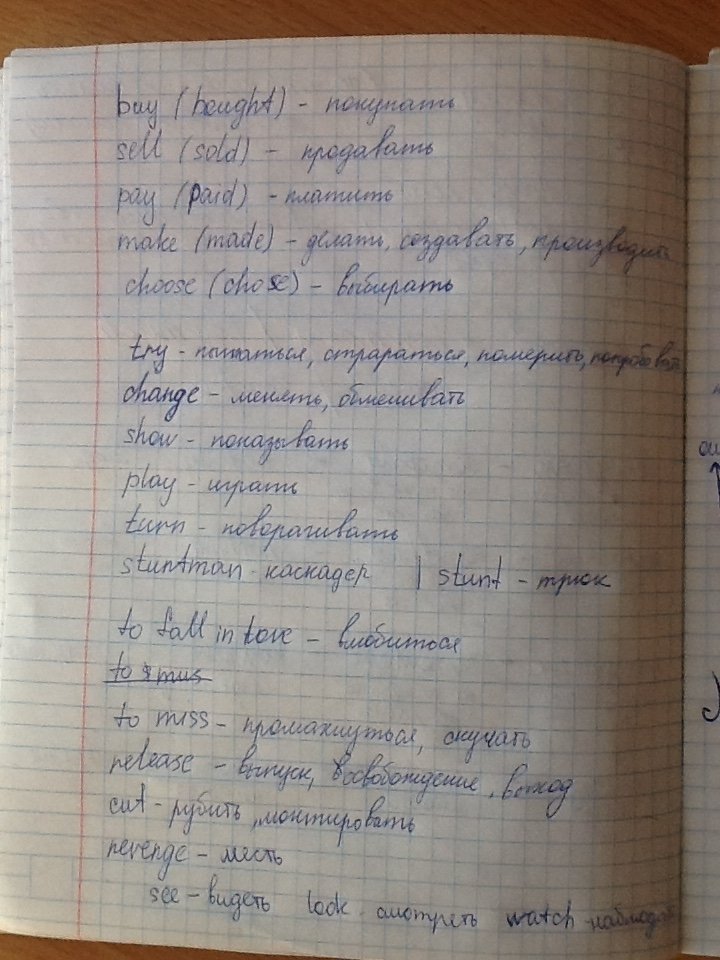 buy (bought) - покупать
sell (sold) - продавать
pay (paid) - платить
make (made) - делать, создавать, производить
choose (chose) - выбирать
try - пытаться, страраться, померить, попробовать
change - менять, обменивать
show - показывать
play - играть
turn - поворачивать
stuntman - каскадер | stunt - трюк
to fall in love - влюбиться
to miss - промахнуться, скучать
release - выпуск, освобождение, выход
cut - рубить, монтировать
revenge - месть
see - видеть look - смотреть watch - наблюдать